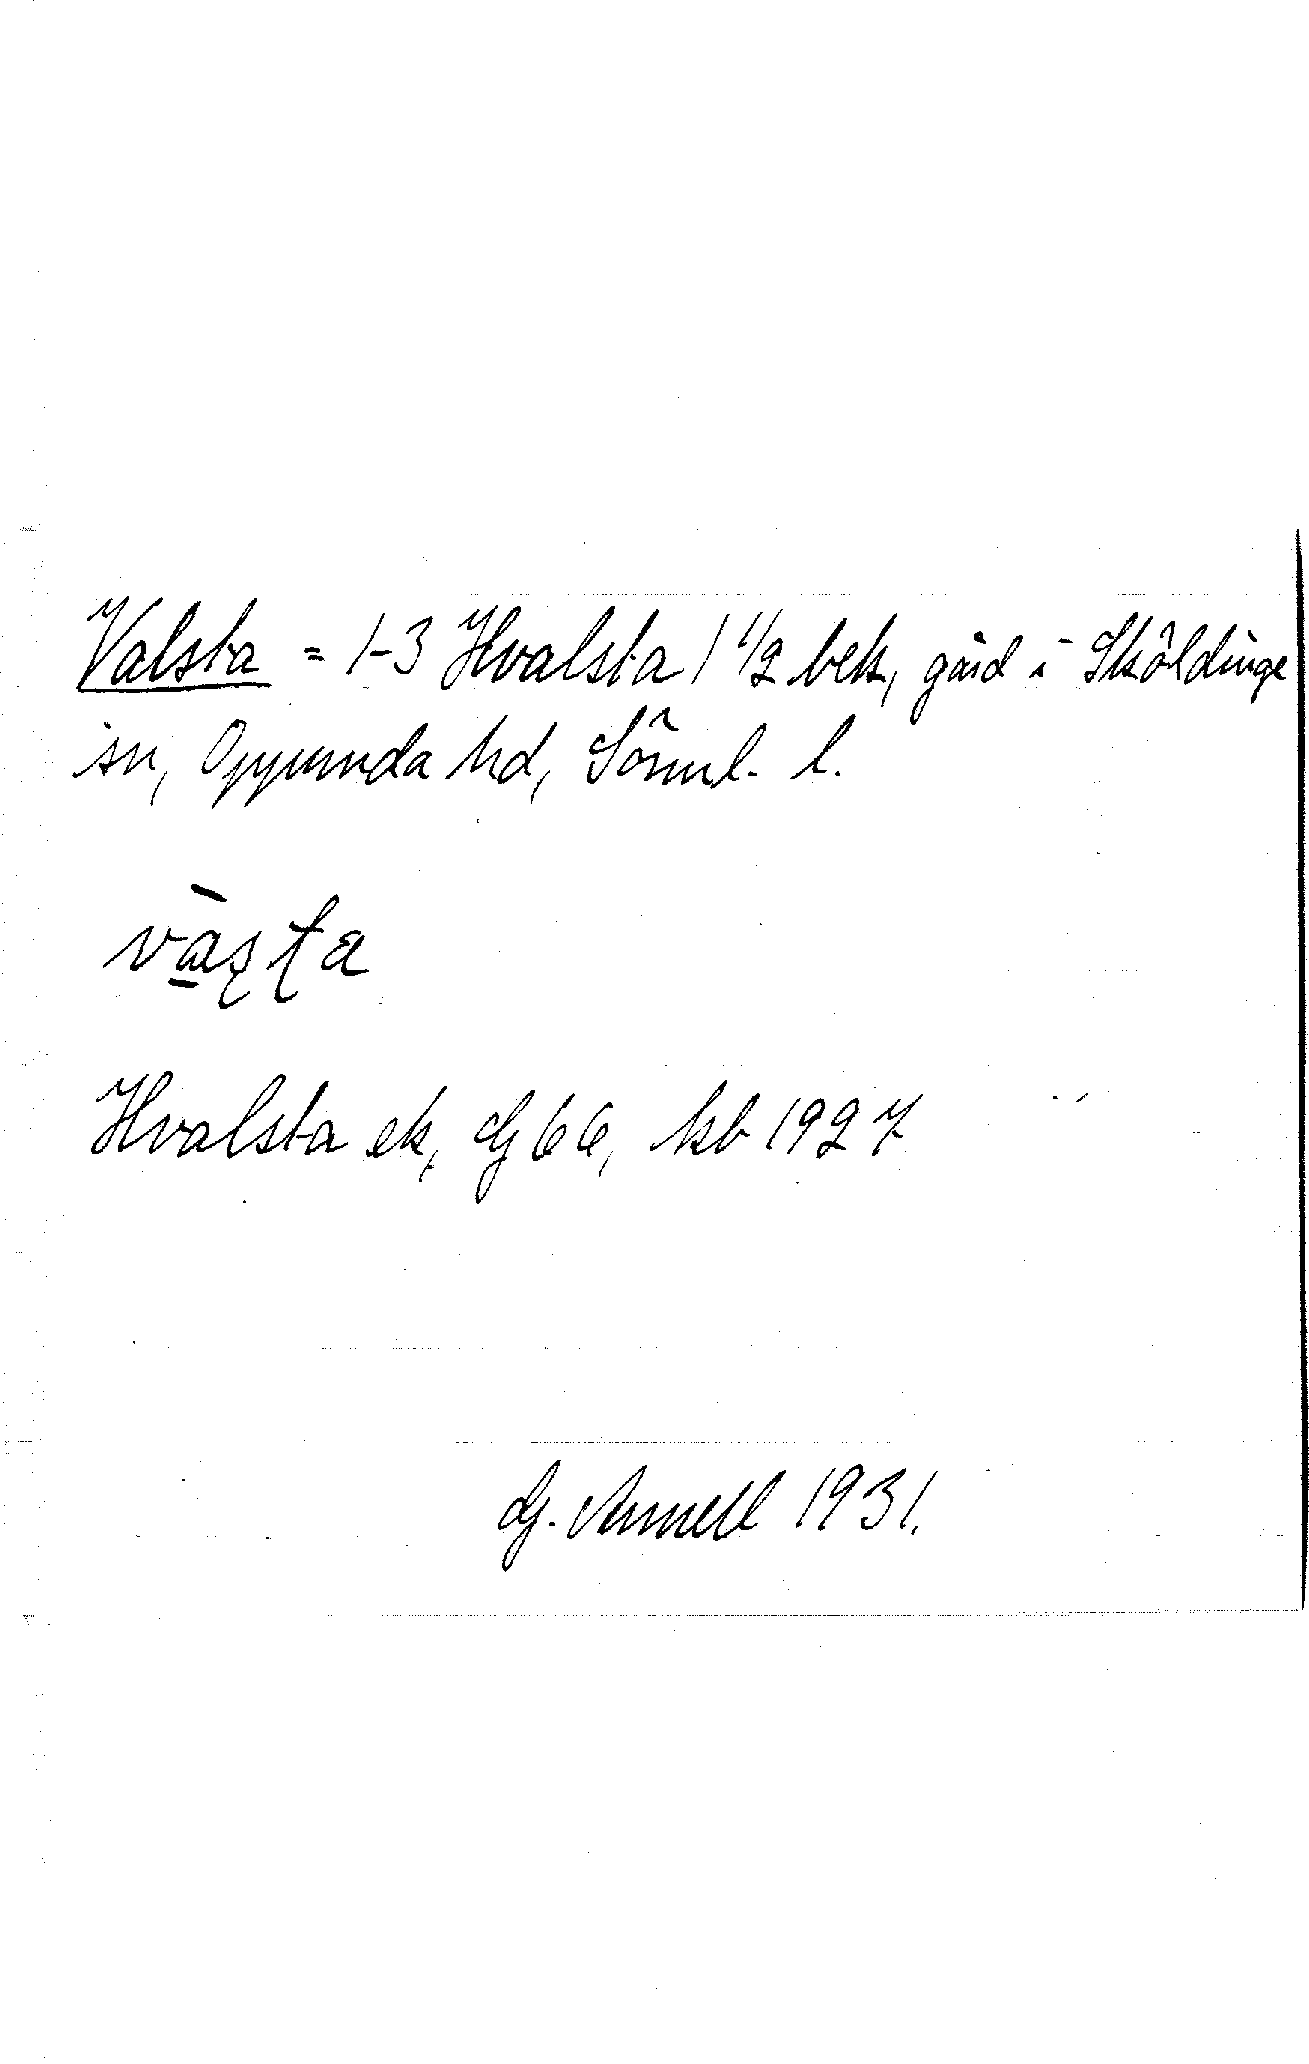 Valsta = 1-3 Hvalsta 1 1/2 bek, gård i Sköldinge
sn, Oppunda hd, Sörml. l.
vàʂʈa
Hvalsta ek, Gj 66, kb 1927
Gj. Annell 1931.